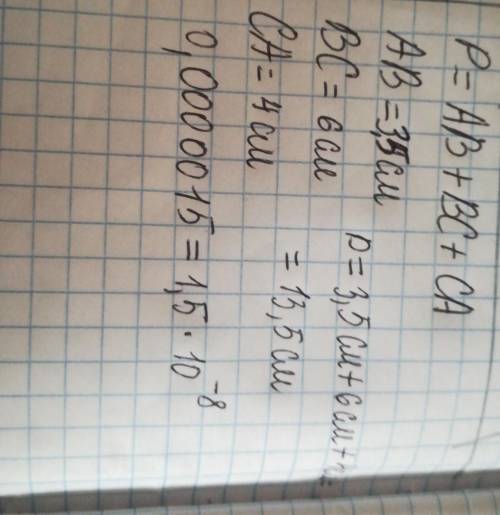 P = AB + BC + CA
AB = 3,5 см
BC = 6 см
CA = 4 см
p = 3,5 см + 6 см +
= 13,5 см
0,00000015 = 1,5 · 10⁻⁸